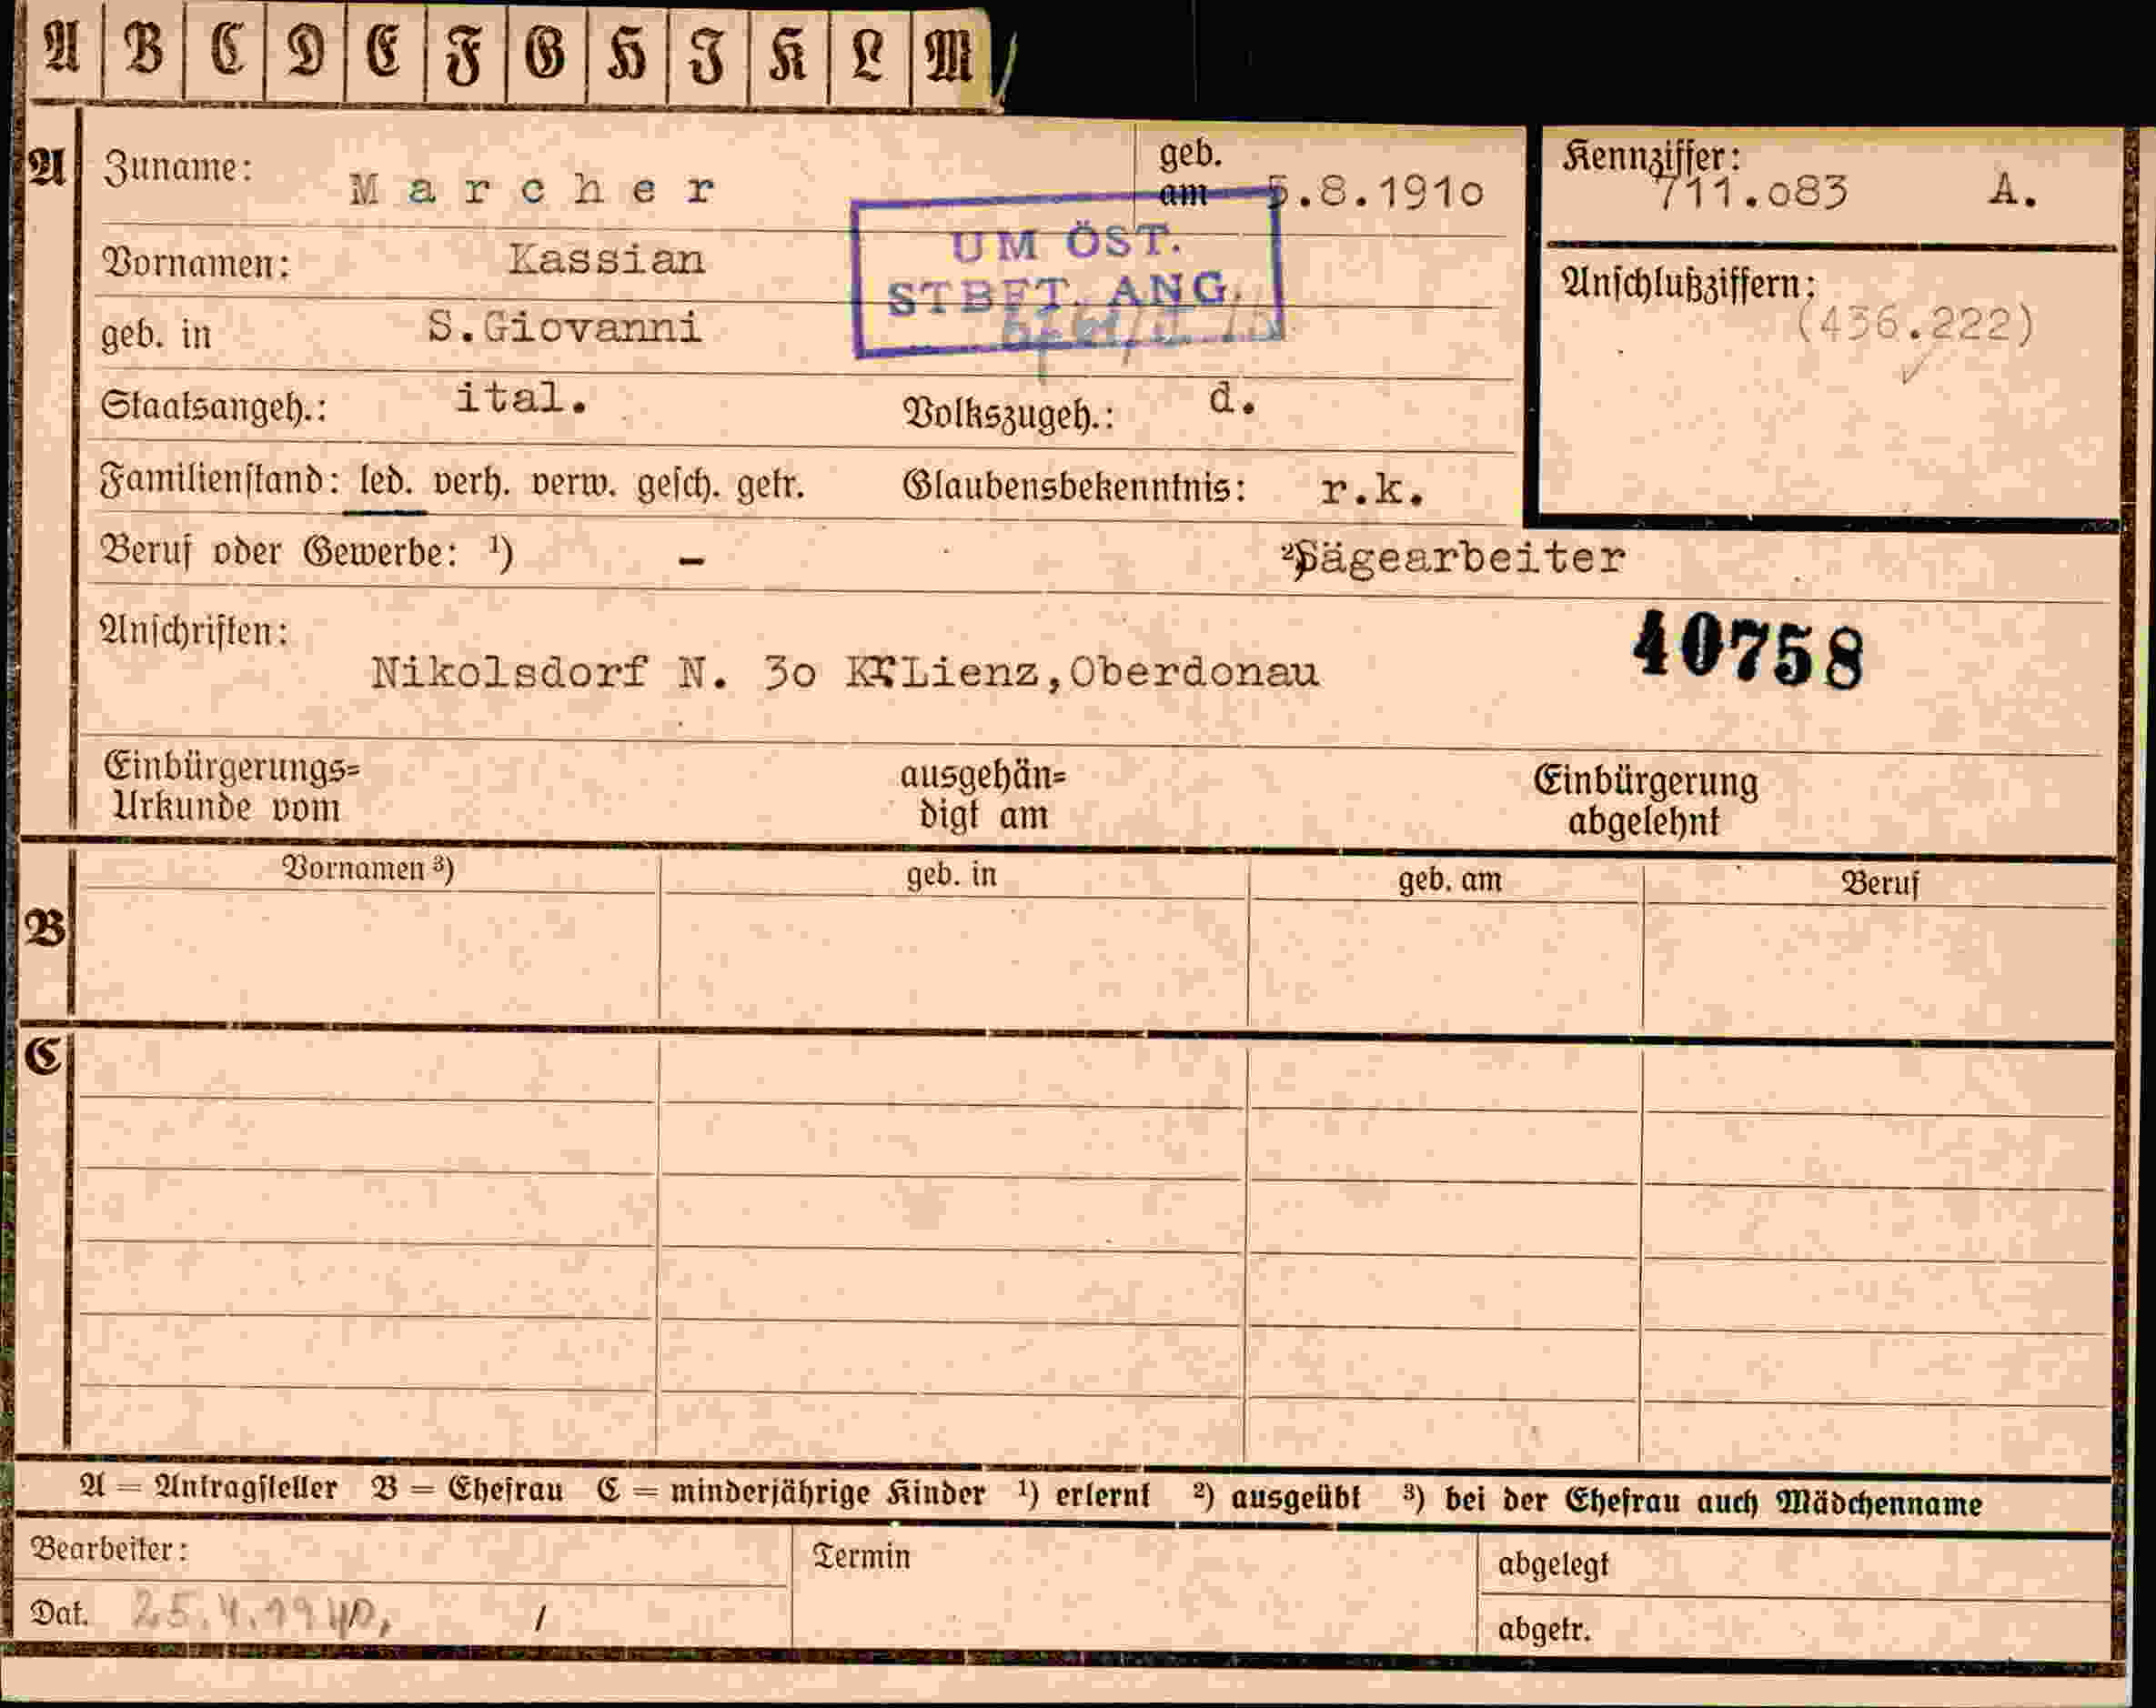 A B C D E F G H I K L M
A
Zuname: Marcher geb. am 5.8.1910
Kennziffer: 711.083 A.
UM ÖST. STBFT. ANG.
Vornamen: Kassian
Anschlußziffern: (436.222)
geb. in S.Giovanni
Staatsangeh.: ital. Volkszugeh.: d.
Familienstand: led. verh. verw. gesch. getr. Glaubensbekenntnis: r.k.
Beruf oder Gewerbe: ¹) – ²) Sägearbeiter
Anschriften:
40758
Nikolsdorf N. 30 Kr Lienz, Oberdonau
Einbürgerungs= ausgehän= Einbürgerung
Urkunde vom digt am abgelehnt
Vornamen ³) geb. in geb. am Beruf
B
C
A = Antragsteller B = Ehefrau C = minderjährige Kinder ¹) erlernt ²) ausgeübt ³) bei der Ehefrau auch Mädchenname
Bearbeiter: Termin abgelegt
Dat. 25.4.1940, / abgetr.